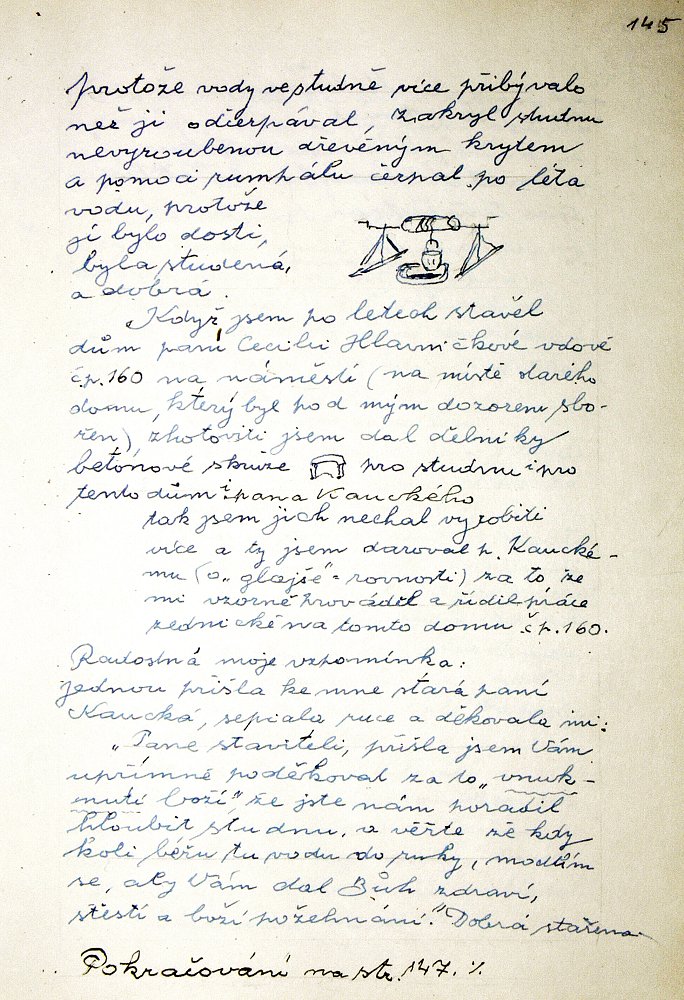 145
protože vody ve studně více přibývalo
než ji odčerpával, zakryl studnu
nevyroubenou dřevěným krytem
a pomocí rumpálu čerpal po léta
vodu, protože
jí bylo dosti,
byla studená,
a dobrá.
Když jsem po letech stavěl
dům paní Cecilii Hlavničkové vdově
čp. 160 na náměstí (na místě starého
domu, který byl pod mým dozorem sbo-
řen) zhotoviti jsem dal dělníky
betonové skruže pro studnu i pro
tento dům i pana Kauckého
tak jsem jich nechal vyrobiti
více a ty jsem daroval p. Kaucké-
mu (o „glajše" = rovnosti) za to že
mi vzorně prováděl a řídil práce
zednické na tomto domu čp. 160.
Radostná moje vzpomínka:
jednou přišla ke mne stará paní
Kaucká, sepiala ruce a děkovala mi:
„Pane staviteli, přišla jsem Vám
upřímně poděkovat za to „vnuk-
nutí boží" že jste nám poradil
hloubit studnu, a věřte že kdy
koli béřu tu vodu do ruky, modlím
se, aby Vám dal Bůh zdraví,
štěstí a boží požehnání." Dobrá stařena
Pokračování na str. 147. ./.